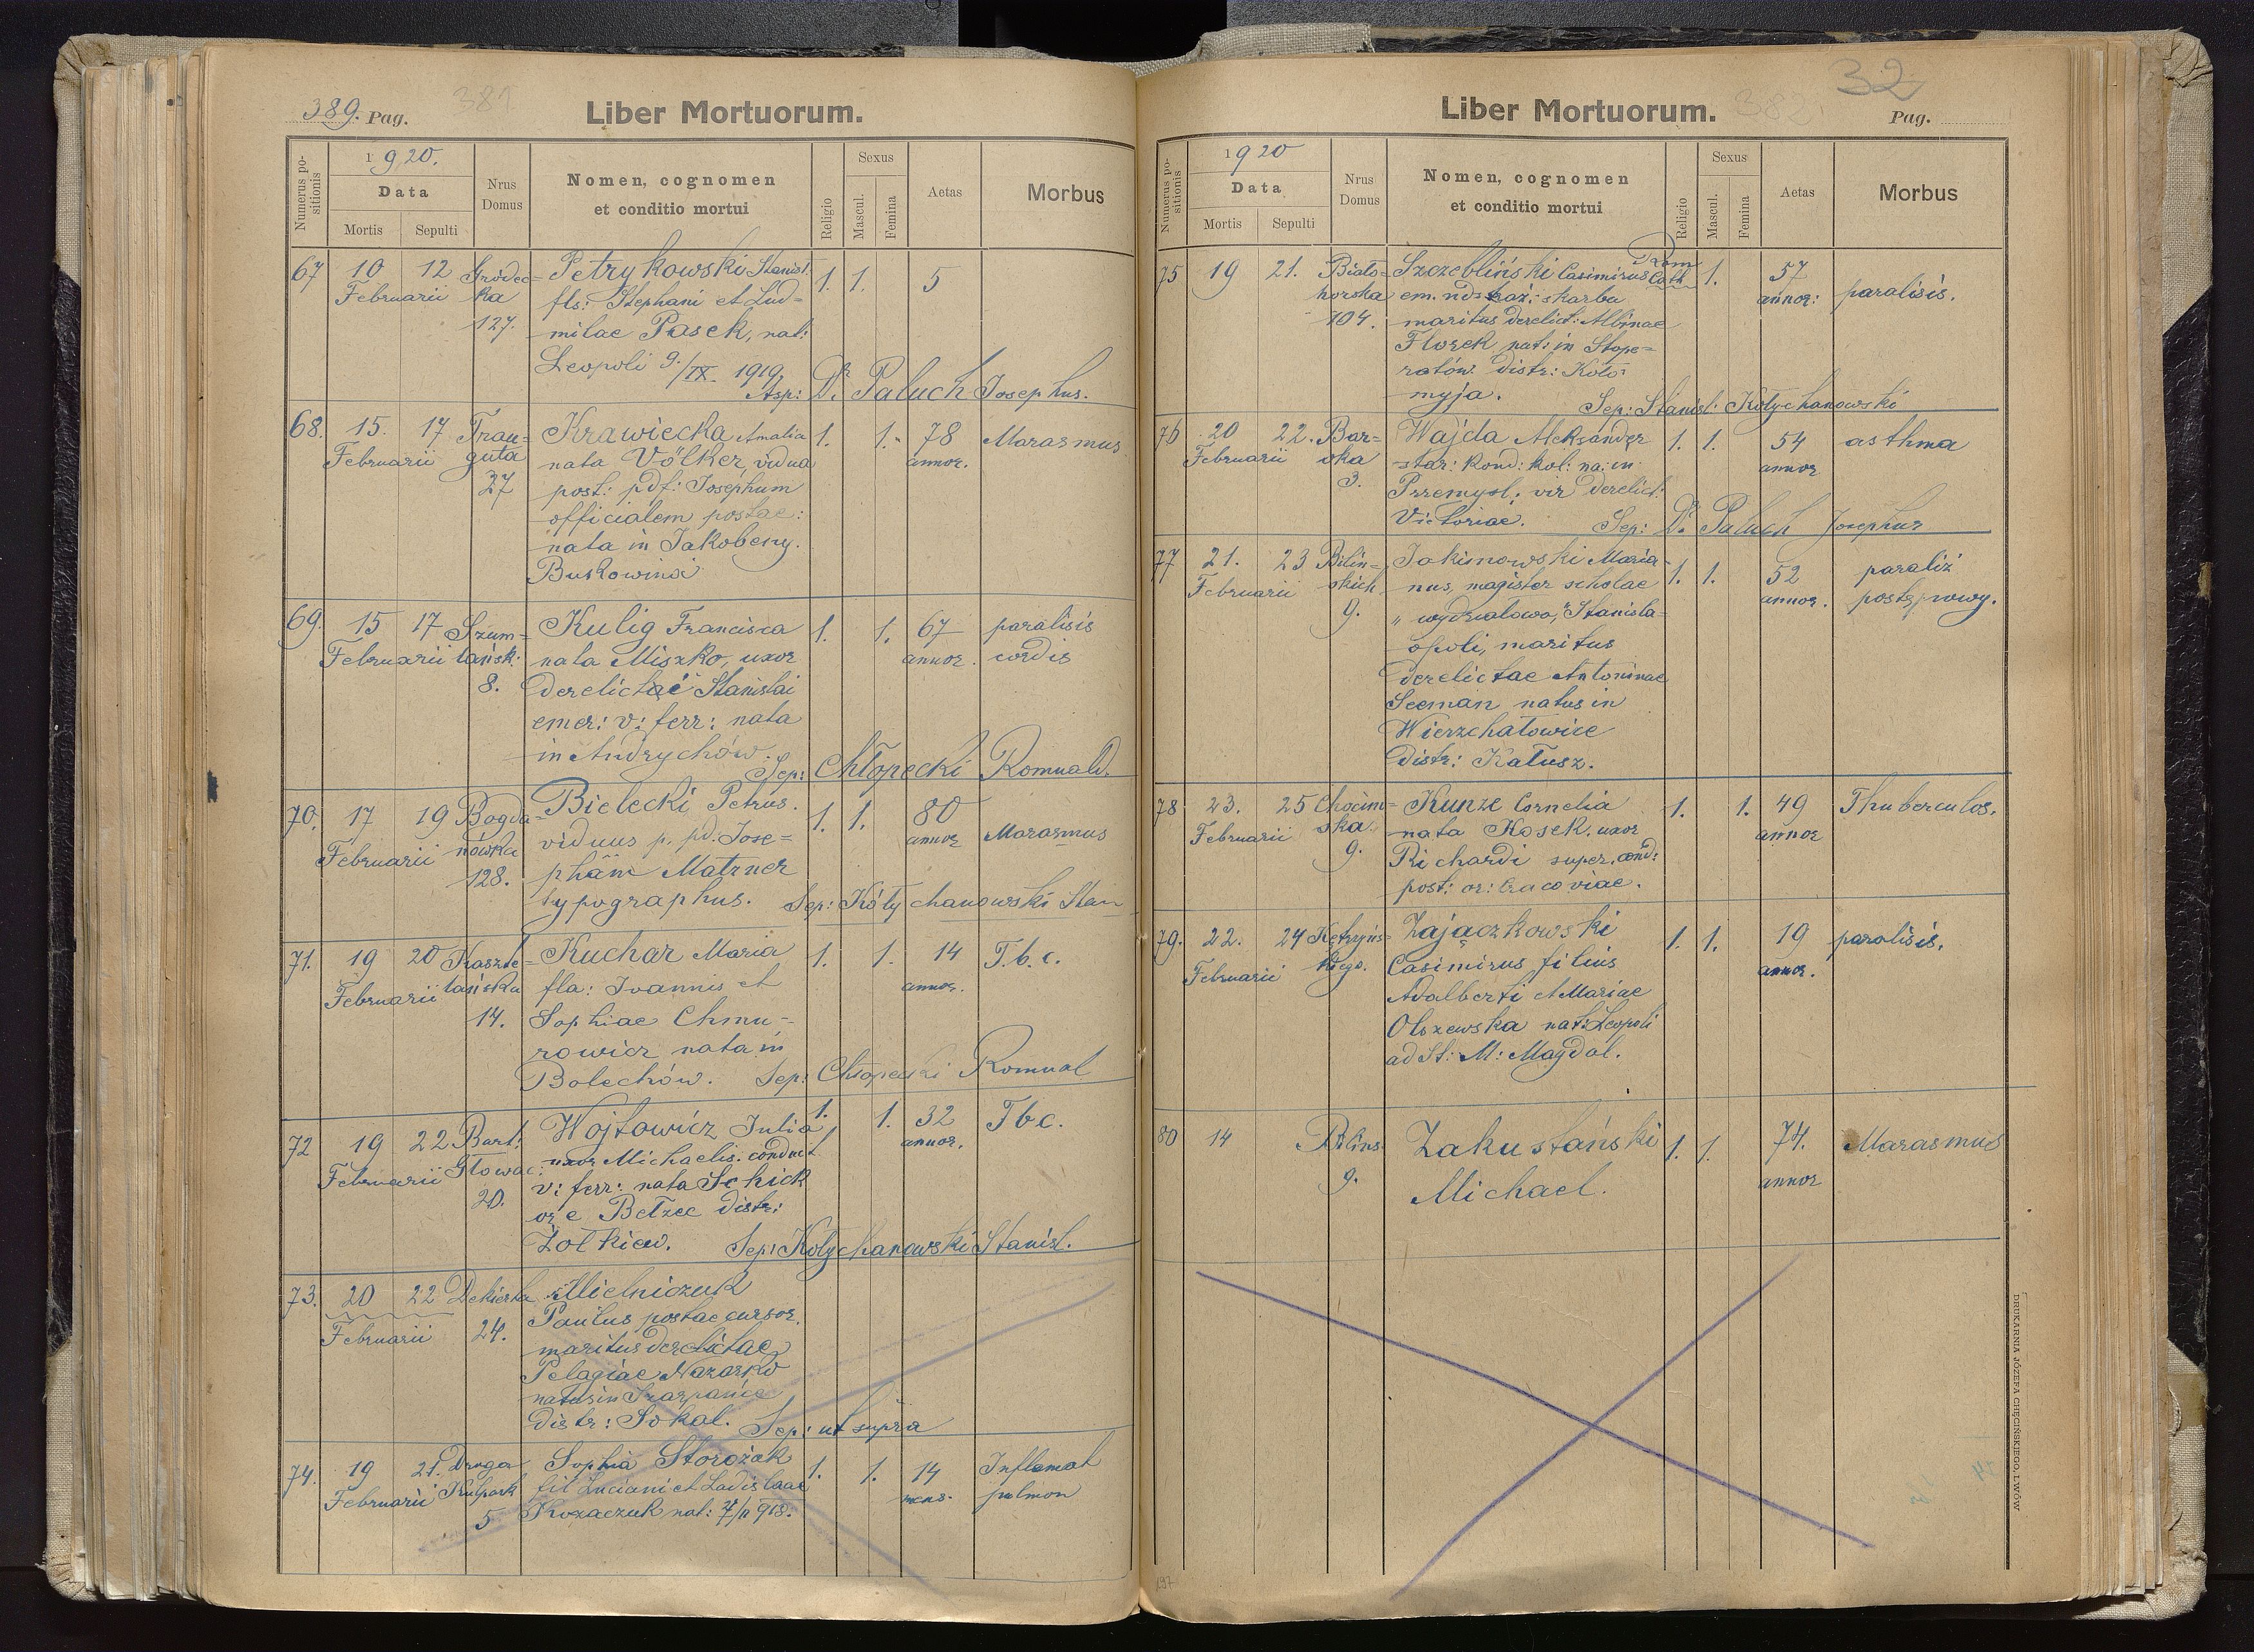 389. Pag. 381
Liber Mortuorum.
Numerus positionis
1920.
Data
Mortis Sepulti
Nrus Domus
Nomen, cognomen
et conditio mortui
Religio
Sexus
Mascul.
Femina
Aetas
Morbus
67 10 12 Gródec= Petrykowski Stanisl. 1. 1. 5
Februarii ka fls: Stephani et Lud=
127. milae Pasek, nat:
Leopoli 9./IX. 1919.
Asp: Dr. Paluch Josephus.
68. 15. 17 Trau= Krawiecka Amalia 1. 1. 78 Marasmus
Februarii guta nata Völker, vidua annor.
27 post: pdf: Josephum
officialem postae:
nata in Jakobeny.
Bukowina
69. 15 17 Szum= Kulig Francisca 1. 1. 67 paralisis
Februarii lańsk: nata Miszko, uxor annor. cordis
8. derelictae Stanislai
emer: v: ferr: nata
in Andrychów.
Sep: Chłopecki Romuald.
70. 17 19 Bogda= Bielecki Petrus. 1. 1. 80
Februarii nówka viduus p. pd. Jose= annor Marasmus
128. pham Matzner
typographus. Sep: Kółychanowski Stan
71. 19 20 Kaszte= Kuchar Maria 1. 1. 14 T.b.c.
Februarii lańska fla: Joannis et annor.
14. Sophiae Chmu=
rowicz nata in
Bolechów. Sep: Chłopecki Romual
72 19 22 Bart: Wojtowicz Julia 1. 1. 32 Tbc.
Februarii Głowac: uxor Michaelis conduct annor.
20. v: ferr: nata Schick
or e Bełzec distr:
Żółkiew. Sep: Kołychanowski Stanisl.
73. 20 22 Dekierta Mielniczuk
Februarii 24. Paulus postae cursor.
maritus derelictae
Pelagiae Nazarko
natus in
distr: Sokal. Sep: ut supra
74. 19 21. Druga Sophia Storożak 1. 1. 14 Inflamat
Februarii Kulpark fil Luciani et Ladislaae mens. pulmon
5 Kozaczuk nat:
Liber Mortuorum.
382 32
Pag.
Numerus positionis
1920
Data
Mortis Sepulti
Nrus Domus
Nomen, cognomen
et conditio mortui
Religio
Sexus
Mascul.
Femina
Aetas
Morbus
75 19 21. Biało= Szczebliński Casimirus Rom Cath 1. 57
horska em. nds straż: skarbu annor: paralisis.
104. maritus derelict: Albinae
Florek nat: in Stope=
ratów distr: Koło=
myja. Sep: Stanisl: Kołychanowski
76 20 22. Bar= Wajda Aleksander 1. 1. 54 asthma
Februarii ska star: kond: kol: na: in annor
3. Przemysl; vir derelict:
Victoriae. Sep: Dr Paluch Josephus
77 21. 23 Bilin= Jakimowski Maria= 1. 1. 52 paraliż
Februarii skich nus, magister scholae annor. postępowy.
9. „wydziałowa” Stanisla=
opoli, maritus
derelictae Antoninae
Seeman natus in
Wierzchatowice
distr: Kałusz.
78 23. 25 Chocim= Kunze Cornelia 1. 1. 49 Thuberculos.
Februarii ska. nata Kosek. uxor annor
9. Richardi super. cond:
post: or: Cracoviae.
79. 22. 24 Kętrzyńs= Zajączkowski 1. 1. 19 paralisis.
Februarii kiego. Casimirus filius annor.
Adalberti et Mariae
Olszewska nat: Leopoli
ad St: M: Magdal.
80 14 Bilins. Zakustański 1. 1. 74. Marasmus
9. Michael. annor
DRUKARNIA JÓZEFA CHĘCIŃSKIEGO, LWÓW
197